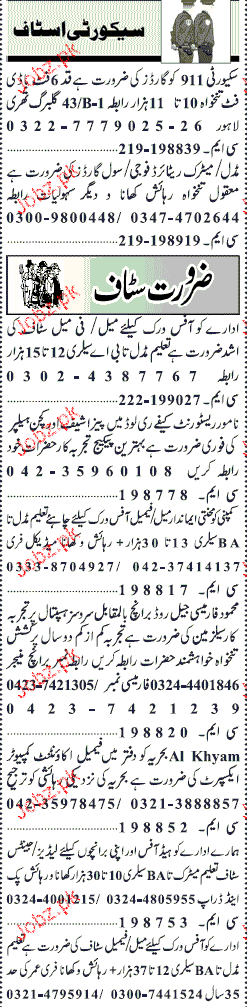 سیکورٹی اسٹاف
سکیورٹی 911 کو گارڈز کی ضرورت ہے قد 6 فٹ باڈی
فٹ تنخواہ 10 تا 11 ہزار رابطہ 43/B-1 گلبرگ تھری
لاہور 0322-7779025-26
سی ایم۔ 219-198839
مڈل/ میٹرک ریٹائرڈ فوجی/ سول گارڈز کی ضرورت ہے
معقول تنخواہ رہائش کھانا و دیگر سہولیات رابطہ
0300-9800448/ 0347-4702644
سی ایم۔ 219-198919
ضرورت سٹاف
ادارے کو آفس ورک کیلئے میل/ فی میل سٹاف کی
اشد ضرورت ہے تعلیم مڈل تا بی اے سیلری 12 تا 15 ہزار
رابطہ 0302-4387767
سی ایم۔ 222-199027
نامور ریسٹورنٹ کیفے ری لوڈ میں پیزا شیف اور کچن ہیلپر
کی فوری ضرورت ہے بہترین پیکیج تجربہ کار حضرات خود
رابطہ کریں 042-35960108
سی ایم۔ 198778
کمپنی/ محنتی ایماندار میل/ فیمیل آفس ورک کیلئے چاہیے تعلیم مڈل تا
BA سیلری 13 تا 30 ہزار + رہائش و کھانا میڈیکل فری
0333-8704927/ 042-37414137
سی ایم۔ 198817
محمود فارمیسی جیل روڈ برانچ بالمقابل سروسز ہسپتال پر تجربہ
کار سیلز مین کی ضرورت ہے تجربہ کم از کم دو سال پرکشش
تنخواہ خواہشمند حضرات رابطہ کریں رابطہ نمبر برانچ منیجر
0324-4401846 فارمیسی نمبر 0423-7421305/
0423-7421239
سی ایم۔ 198820
Al Khyam بحریہ کو دفتر میں فیمیل اکاؤنٹنٹ کمپیوٹر
ایکسپرٹ کی ضرورت ہے بحریہ کی نزدیکی رہائشی کو ترجیح
042-35978475/ 0321-3888857
سی ایم۔ 198852
ہمارے ادارے کو ہیڈ آفس اور اپنی برانچوں کیلئے لیڈیز/ جینٹس
سٹاف تعلیم میٹرک تا BA سیلری 10 تا 30 ہزار کھانا و رہائش پک
اینڈ ڈراپ 0324-4805955 / 0324-4001215
سی ایم۔ 198753
ادارے کو آفس ورک کیلئے میل/ فیمیل سٹاف کی ضرورت ہے تعلیم
مڈل تا BA سیلری 12 تا 37 ہزار + رہائش و کھانا فری عمر کی حد
35 سال 0300-7441524/ 0321-4795914